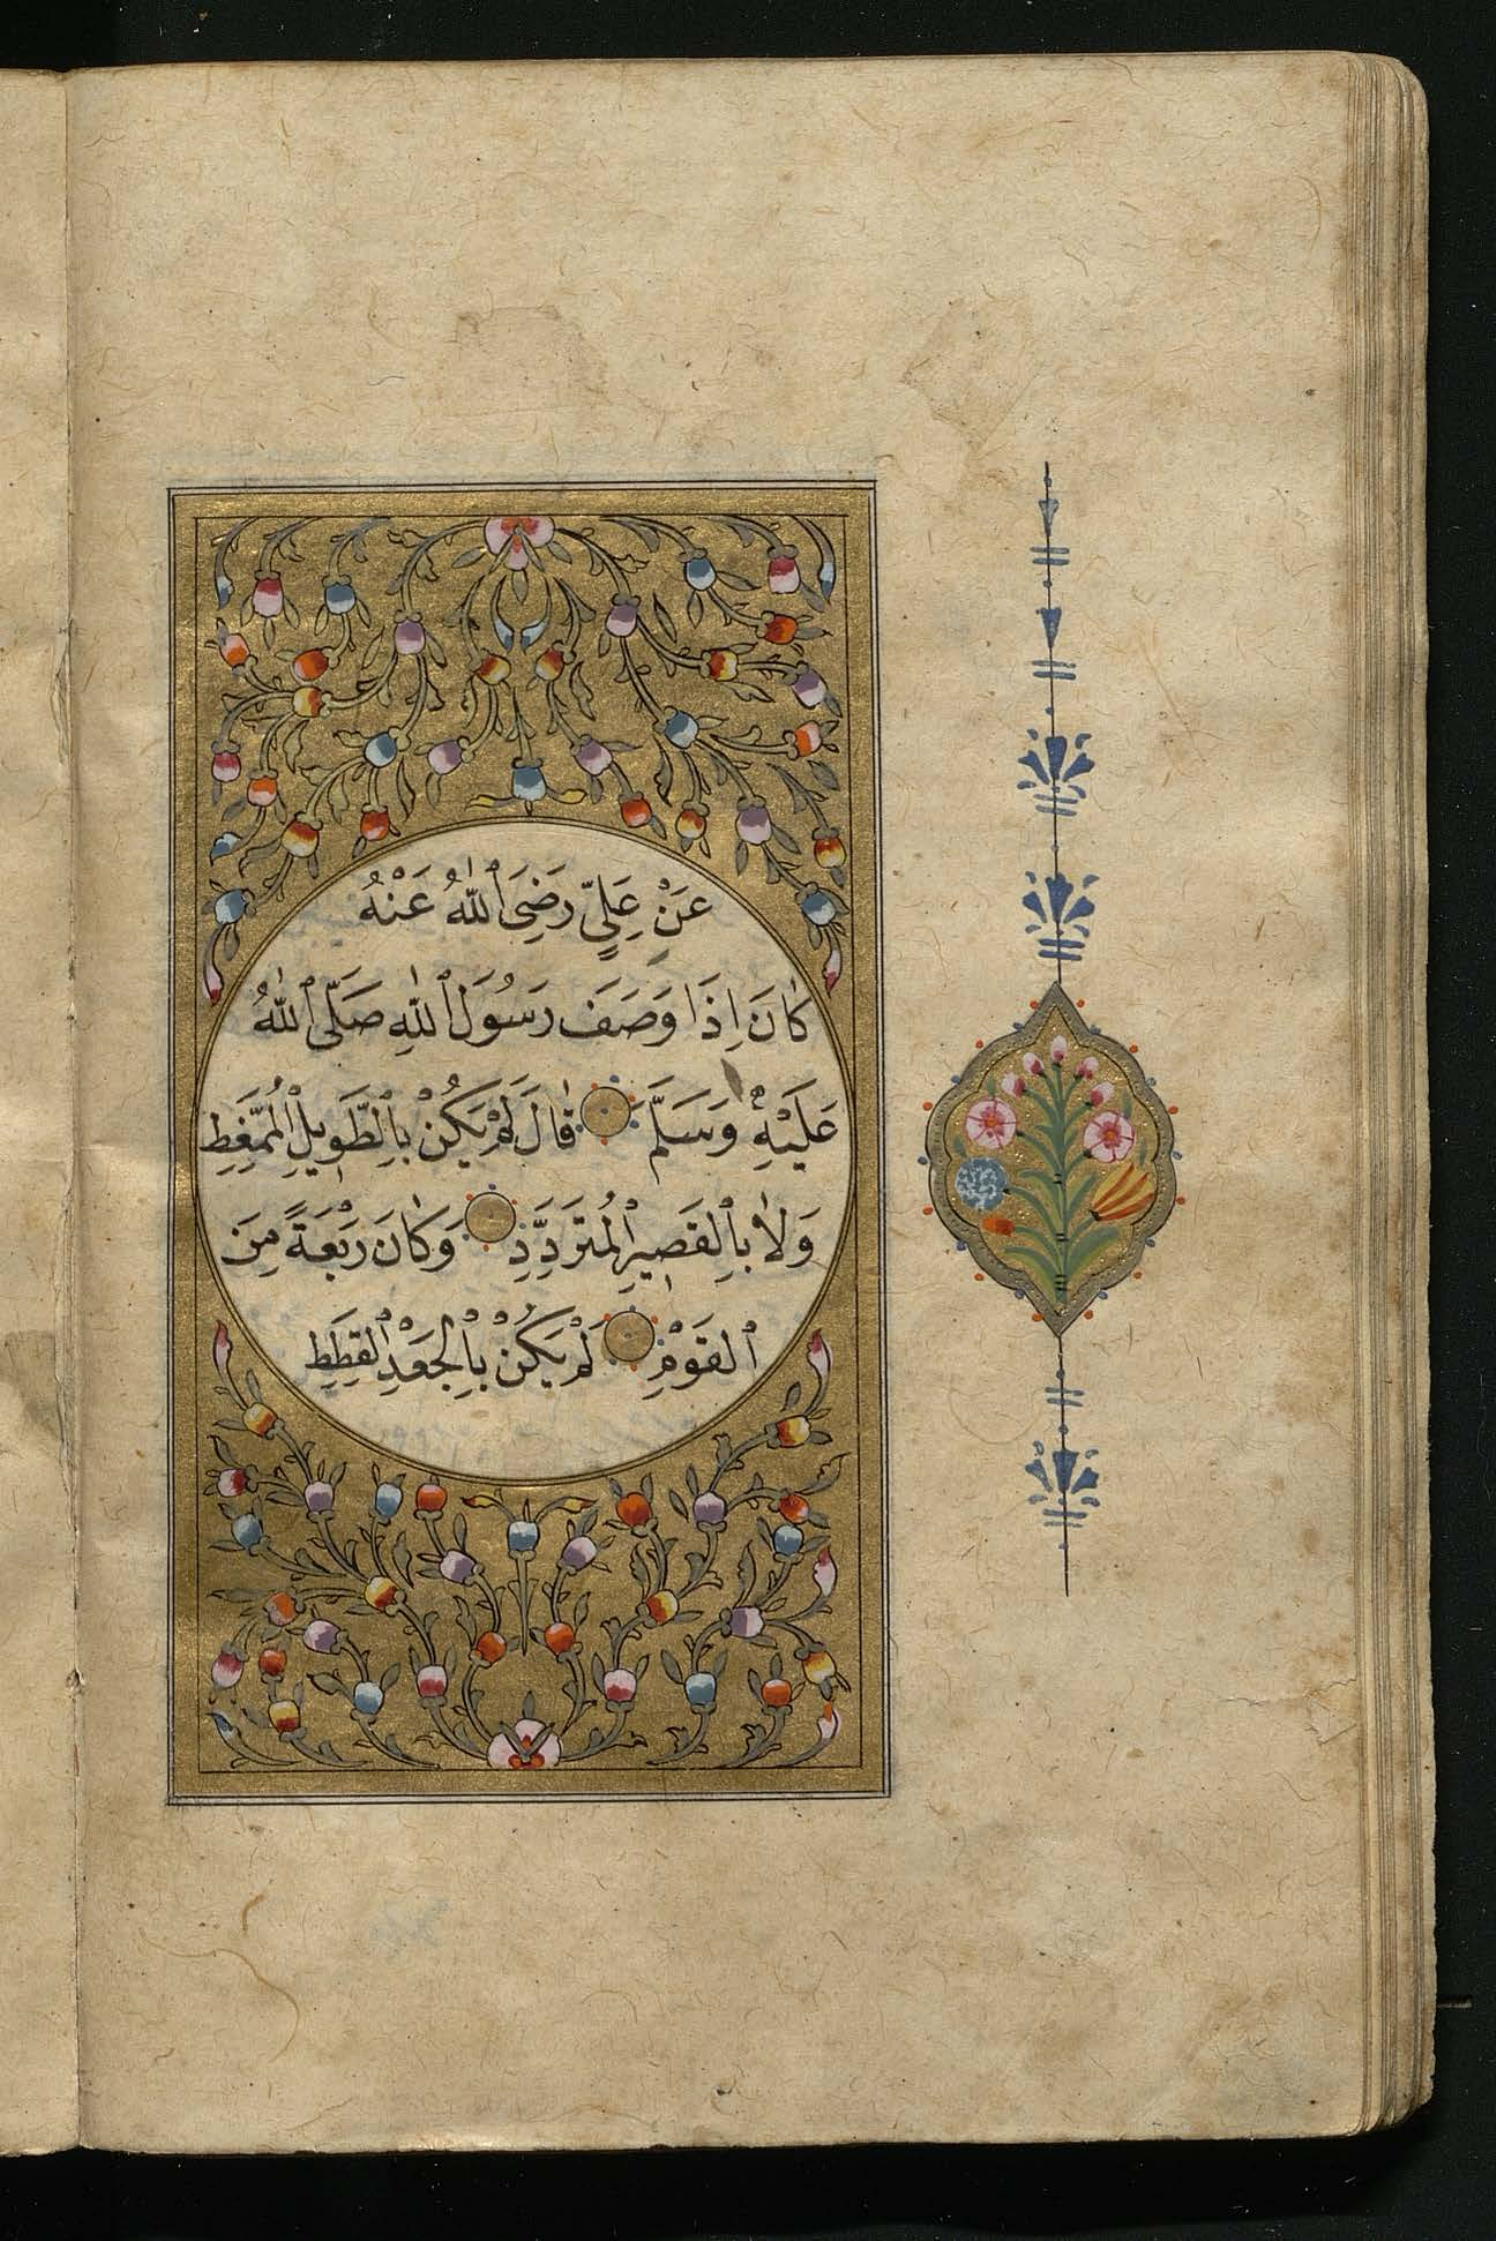 عَنْ عَلِيٍّ رَضِيَ ٱللّٰهُ عَنْهُ
كَانَ اِذَا وَصَفَ رَسُولَ ٱللّٰهِ صَلَّى ٱللّٰهُ
عَلَيْهِ وَسَلَّمَ قَالَ لَمْ يَكُنْ بِالطَّوِيلِ الْمُمَّغِطِ
وَلَا بِالْقَصِيرِ الْمُتَرَدِّدِ وَكَانَ رَبْعَةً مِنَ
ٱلْقَوْمِ لَمْ يَكُنْ بِالْجَعْدِ الْقَطَطِ